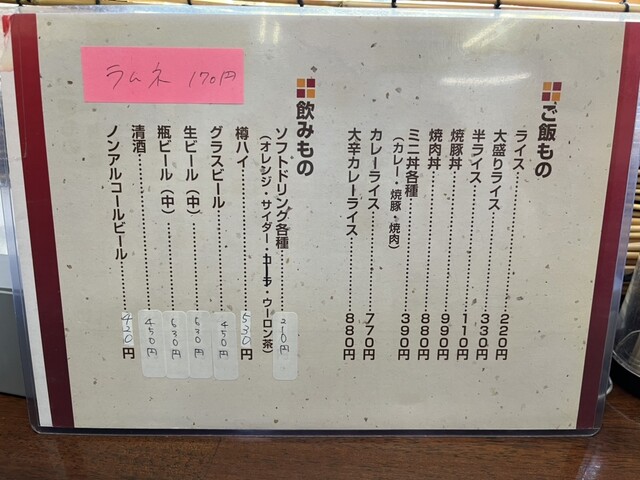 ご飯もの
ライス……220円
大盛りライス……330円
半ライス……110円
焼豚丼……990円
焼肉丼……880円
ミニ丼各種……390円
(カレー・焼豚・焼肉)
カレーライス……770円
大辛カレーライス……880円
飲みもの
ソフトドリンク各種……210円
(オレンジ・サイダー・コーラ・ウーロン茶)
樽ハイ……530円
グラスビール……450円
生ビール(中)……530円
瓶ビール(中)……630円
清酒……450円
ノンアルコールビール……420円
ラムネ 170円